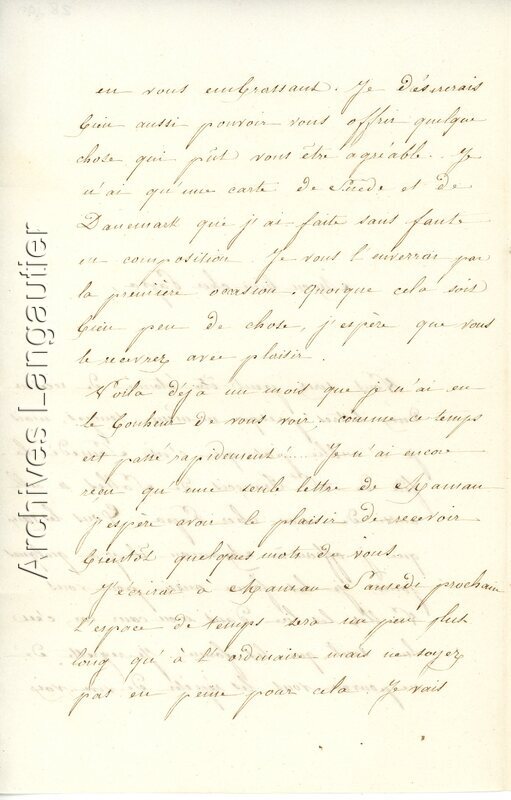 en vous embrassant. Je désirerais
bien aussi pouvoir vous offrir quelque
chose qui pût vous être agréable. Je
n'ai qu'une carte de Suède et de
Danemark que j'ai faite sans faute
en composition. Je vous l'enverrai par
la première occasion. Quoique cela soit
bien peu de chose, j'espère que vous
le recevrez avec plaisir.
Voilà déjà un mois que je n'ai eu
le bonheur de vous voir. comme ce temps
est passé rapidement! Je n'ai encore
reçu qu'une seule lettre de Maman
j'espère avoir le plaisir de recevoir
bientôt quelques mots de vous.
J'écrirai à Maman Samedi prochain
l'espace de temps sera un peu plus
long qu'à l'ordinaire mais ne soyez
pas en peine pour cela Je vais
Archives Langautier